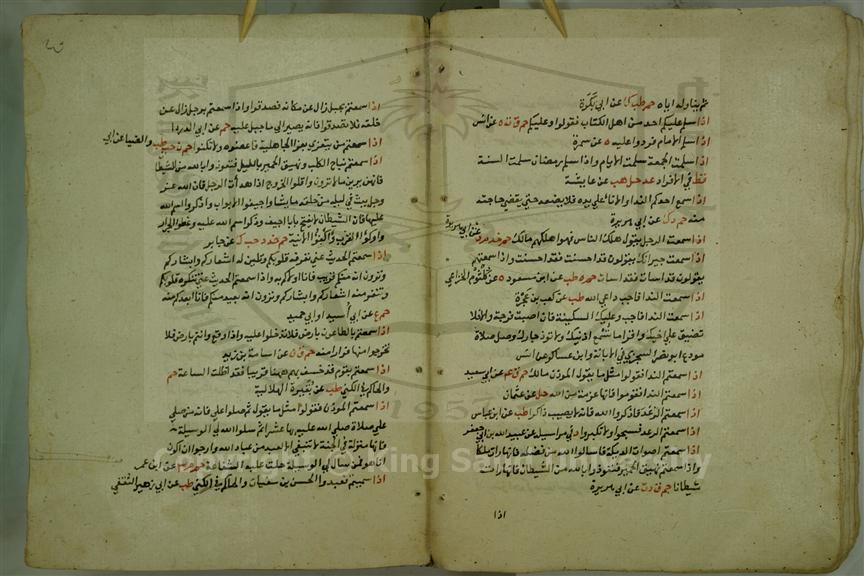 ثم يناوله اياه حم طب ك عن ابي بكرة
اذا سلم عليكم احد من اهل الكتاب فقولوا وعليكم حم ق ت ه عن انس
اذا سلم الامام فردوا عليه ه عن سمرة
اذا سلمت الجمعة سلمت الايام واذا سلم رمضان سلمت السنة
قط في الافراد عد حل هب عن عايشة
اذا سمع احدكم الندا والانا على يده فلا يضعه حتى يقضي حاجته
منه حم د ك عن ابي هريرة
اذا سمعت الرجل يقول هلك الناس فهو اهلكهم مالك حم خد م د عن ابي هريرة
اذا سمعت جيرانك يقولون قد احسنت فقد احسنت واذا سمعتهم
يقولون قد اسات فقد اسات حم ه طب عن ابن مسعود ه عن كلثوم الخزاعي
اذا سمعت الندا فاجب داعي الله طب عن كعب بن عجرة
اذا سمعت الندا فاجب وعليك السكينة فان اصبت فرجة والا فلا
تضيق على اخيك واقرا ما تسمع اذنيك ولا تؤذ جارك وصل صلاة
مودع ابو نصر السجزي في الابانة وابن عساكر عن انس
اذا سمعتم الندا فقولوا مثل ما يقول المؤذن مالك حم ق عم عن ابي سعيد
اذا سمعتم الندا فقوموا فانها عزمة من الله حل عن عثمان
اذا سمعتم الرعد فاذكروا الله فانه لا يصيب ذاكرا طب عن ابن عباس
اذا سمعتم الرعد فسبحوا ولا تكبروا د في مراسيله عن عبيد الله بن ابي جعفر
اذا سمعتم اصوات الديكة فسالوا الله من فضله فانها رات ملكا
واذا سمعتم نهيق الحمير فتعوذوا بالله من الشيطان فانها رات
شيطانا حم ق د ت عن ابي هريرة
اذا
اذا سمعتم بجبل زال عن مكانه فصدقوا واذا سمعتم برجل زال عن
خلقه فلا تصدقوا فانه يصير الى ما جبل عليه حم عن ابي الدردا
اذا سمعتم من يتعزى بعزا الجاهلية فاعضوه ولا تكنوا حم ن حب طب والضيا عن ابي
اذا سمعتم نباح الكلب ونهيق الحمير بالليل فتعوذوا بالله من الشيطان
فانهن يرين ما لا ترون واقلوا الخروج اذا هدات الرجل فان الله عز
وجل يبث في ليله من خلقه ما يشا واجيفوا الابواب واذكروا اسم الله
عليها فان الشيطان لا يفتح بابا اجيف وذكر اسم الله عليه وغطوا الجرار
واوكوا القرب واكفئوا الانية حم خد د حب ك عن جابر
اذا سمعتم الحديث عني تعرفه قلوبكم وتلين له اشعاركم وابشاركم
وترون انه منكم قريب فانا اولاكم به واذا سمعتم الحديث عني تنكره قلوبكم
وتنفر منه اشعاركم وابشاركم وترون انه بعيد منكم فانا ابعدكم منه
حم ع عن ابي اسيد او ابي حميد
اذا سمعتم بالطاعون بارض فلا تدخلوا عليه واذا وقع وانتم بارض فلا
تخرجوا منها فرارا منه حم ق ن عن اسامة بن زيد
اذا سمعتم بقوم قد خسف بهم ههنا قريبا فقد اظلت الساعة حم
والحاكم في الكنى طب عن بقيرة الهلالية
اذا سمعتم المؤذن فقولوا مثل ما يقول ثم صلوا علي فانه من صلى
علي صلاة صلى الله عليه بها عشرا ثم سلوا الله لي الوسيلة
فانها منزلة في الجنة لا تنبغي الا لعبد من عباد الله وارجو ان اكون
انا هو فمن سال لي الوسيلة حلت عليه الشفاعة حم م عن ابن عمر
اذا سميتم فعبدوا الحسن بن سفيان والحاكم في الكنى طب عن ابي زهير الثقفي